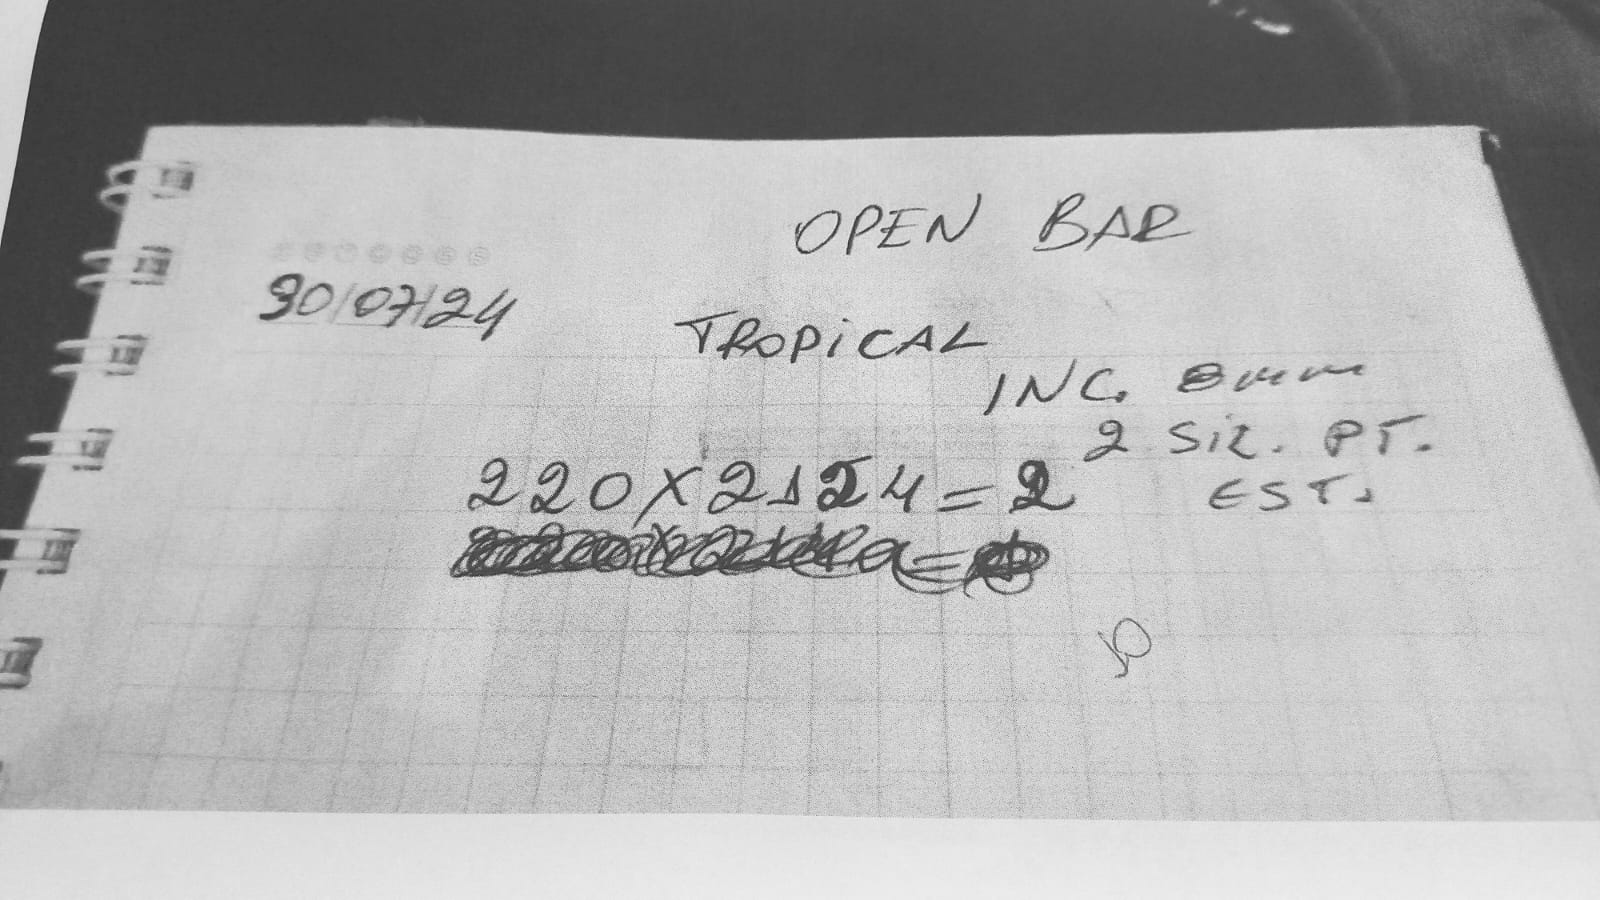 OPEN BAR
30/07/24
TROPiCAL
INC. 8mm
2 SiL. PT.
EST.
220X2124=2